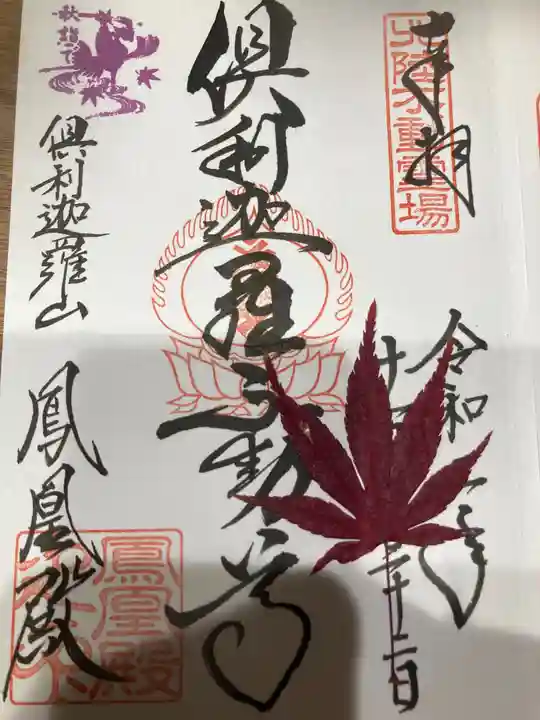 奉拝
北陸不動霊場
令和
十
二十六日
倶利迦羅不動尊
秋詣で
倶利迦羅山
鳳凰殿
鳳凰殿